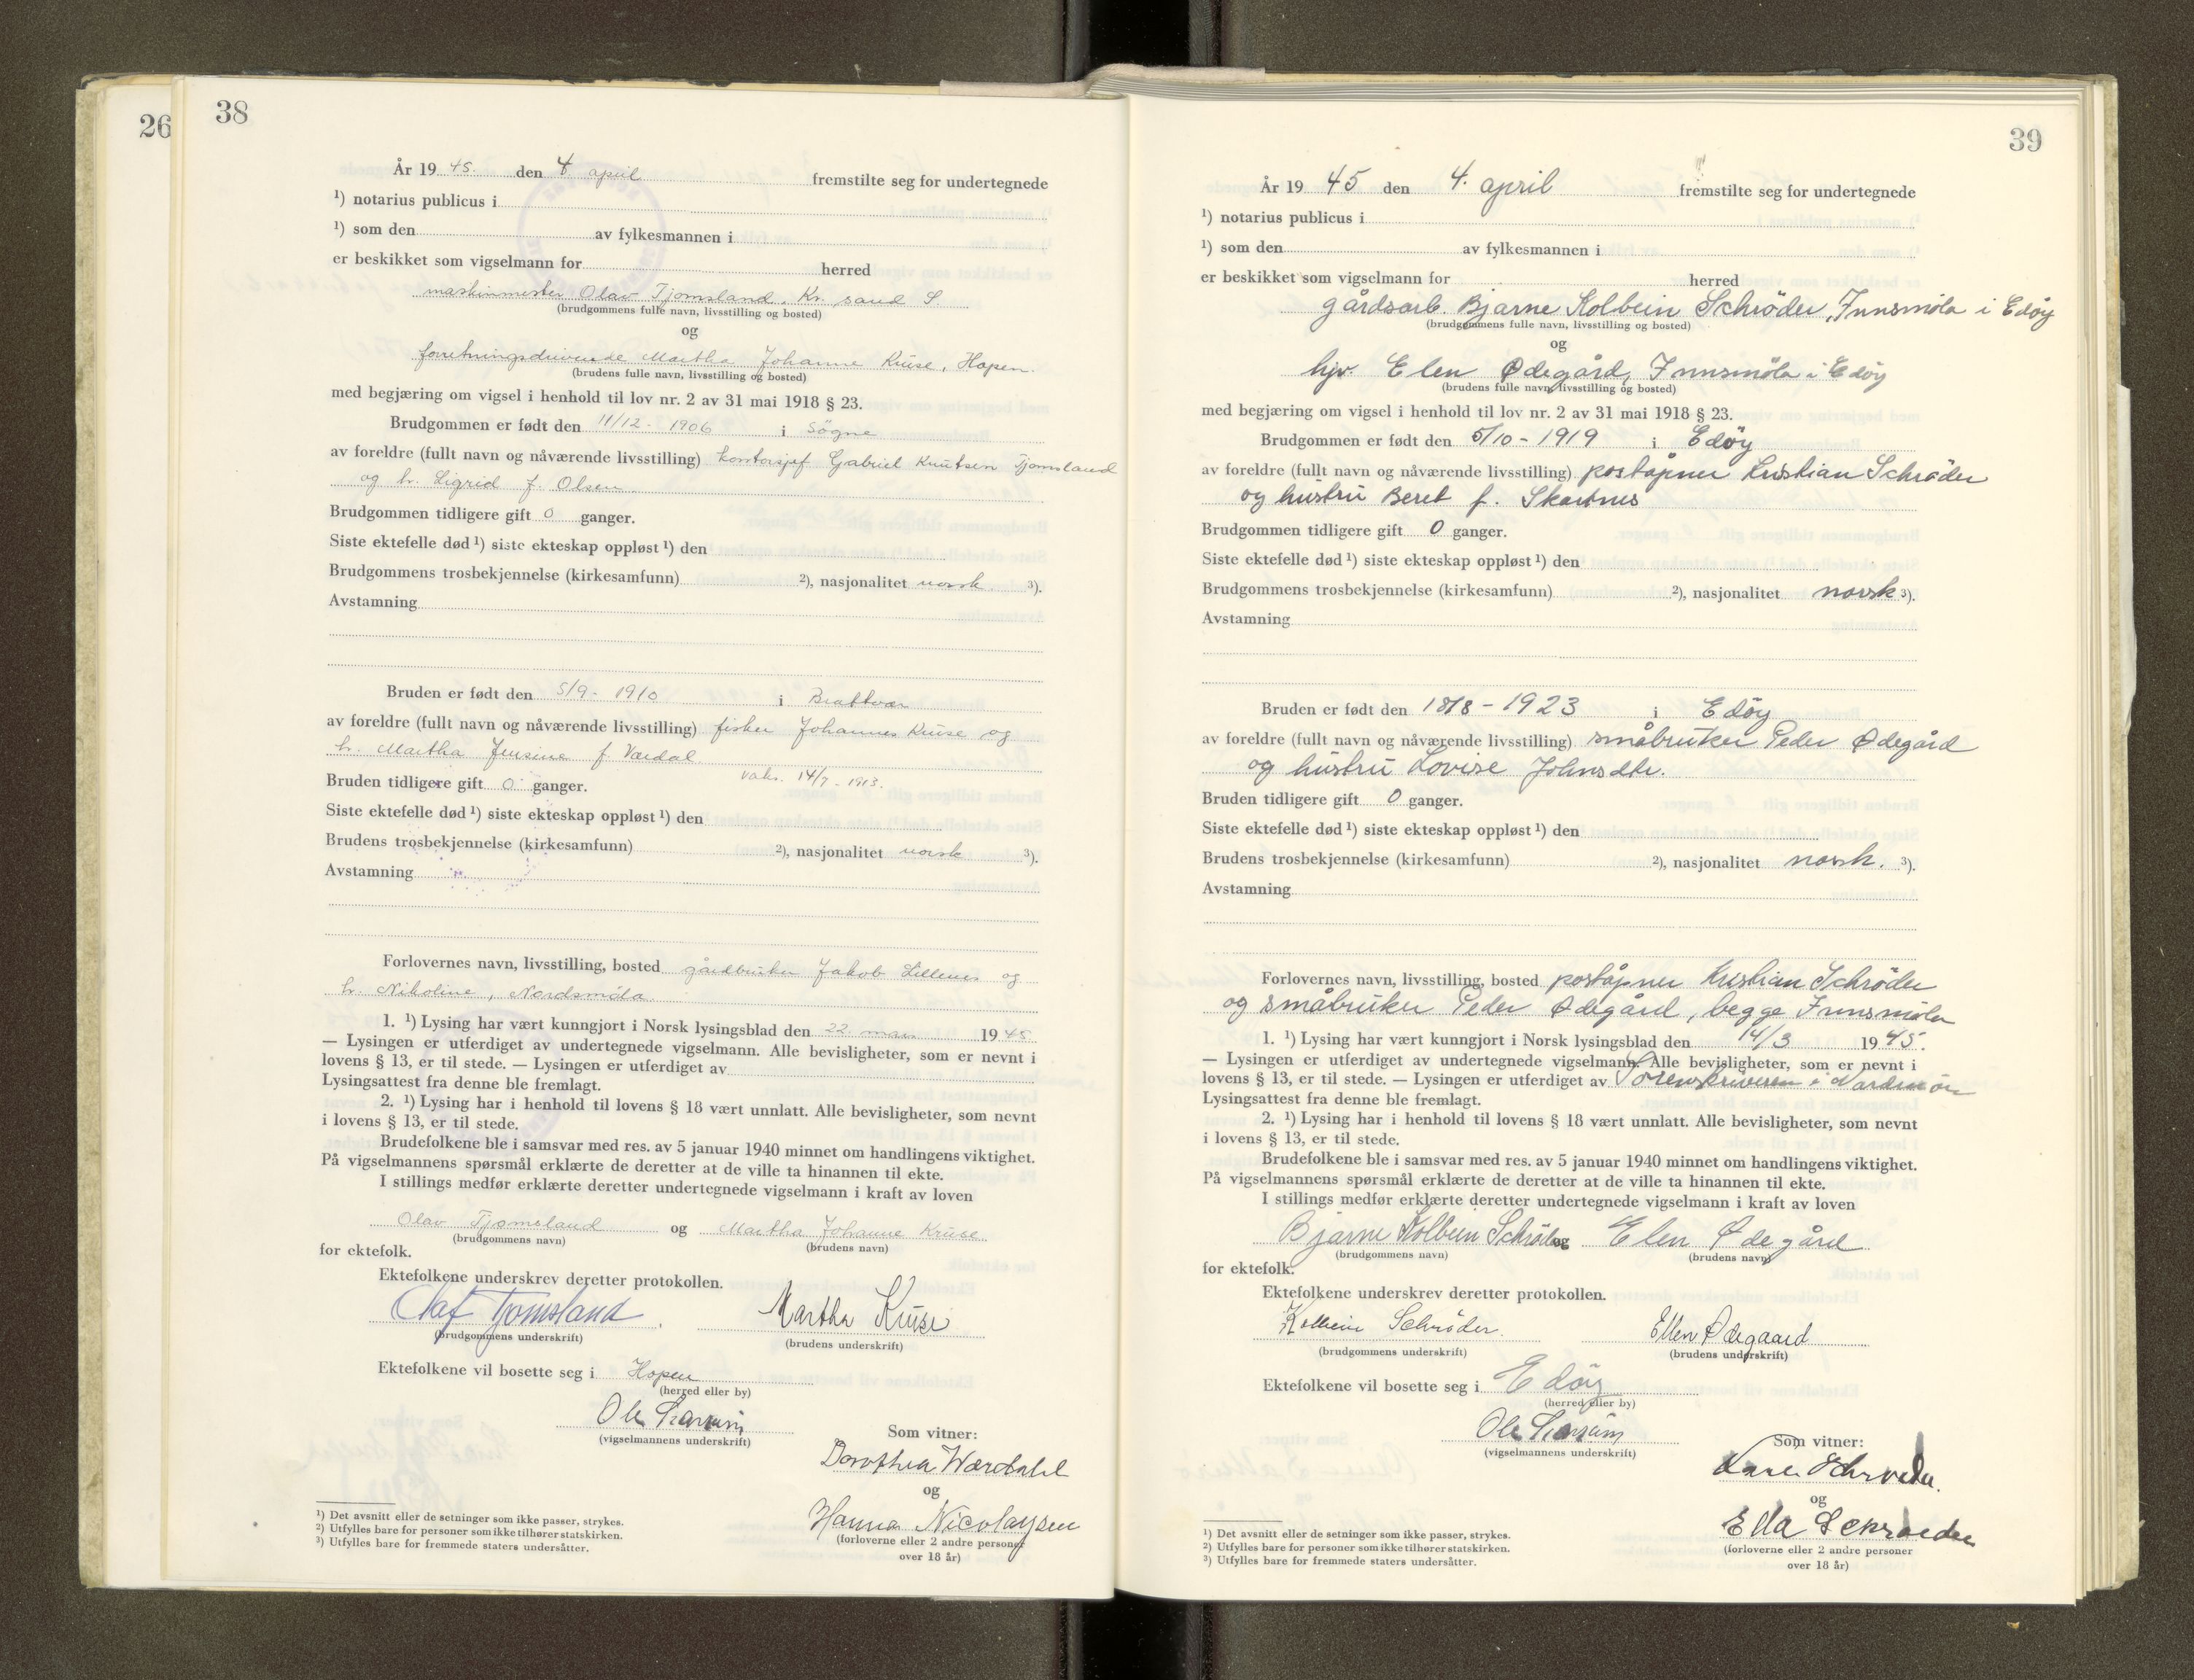 26
38
År 19 45. den 4. april fremstilte seg for undertegnede
¹) notarius publicus i
¹) som den av fylkesmannen i
er beskikket som vigselmann for herred
maskinmester Olav Tjomsland, Kr. sand S.
(brudgommens fulle navn, livsstilling og bosted)
og
forretningsdrivende Martha Johanne Kruse, Hopen.
(brudens fulle navn, livsstilling og bosted)
med begjæring om vigsel i henhold til lov nr. 2 av 31 mai 1918 § 23.
Brudgommen er født den 11/12 - 1906 i Søgne
av foreldre (fullt navn og nåværende livsstilling) kontorsjef Gabriel Knutsen Tjomsland
og h. Sigrid f. Olsen
Brudgommen tidligere gift 0 ganger.
Siste ektefelle død ¹) siste ekteskap oppløst ¹) den
Brudgommens trosbekjennelse (kirkesamfunn) ²), nasjonalitet norsk ³).
Avstamning
Bruden er født den 5/9 - 1910 i Brattvær
av foreldre (fullt navn og nåværende livsstilling) fisker Johannes Kruse og
h. Martha Jensine f. Værdal
vaks. 14/7 - 1913.
Bruden tidligere gift 0 ganger.
Siste ektefelle død ¹) siste ekteskap oppløst ¹) den
Brudens trosbekjennelse (kirkesamfunn) ²), nasjonalitet norsk ³).
Avstamning
Forlovernes navn, livsstilling, bosted gårdbruker Jakob Lillenes og
h. Nikoline, Nordsmøla
1. ¹) Lysing har vært kunngjort i Norsk lysingsblad den 22. mars 19 45
— Lysingen er utferdiget av undertegnede vigselmann. Alle bevisligheter, som er nevnt i
lovens § 13, er til stede. — Lysingen er utferdiget av
Lysingsattest fra denne ble fremlagt.
2. ¹) Lysing har i henhold til lovens § 18 vært unnlatt. Alle bevisligheter, som nevnt
i lovens § 13, er til stede.
Brudefolkene ble i samsvar med res. av 5 januar 1940 minnet om handlingens viktighet.
På vigselmannens spørsmål erklærte de deretter at de ville ta hinannen til ekte.
I stillings medfør erklærte deretter undertegnede vigselmann i kraft av loven
Olav Tjomsland og Martha Johanne Kruse
(brudgommens navn) (brudens navn)
for ektefolk.
Ektefolkene underskrev deretter protokollen.
Olaf Tjomsland Martha Kruse
(brudgommens underskrift) (brudens underskrift)
Ektefolkene vil bosette seg i Hopen
(herred eller by)
Ole
(vigselmannens underskrift)
Som vitner:
Dorothea Wærdahl
og
Hanna Nicolaysen
(forloverne eller 2 andre personer
over 18 år)
¹) Det avsnitt eller de setninger som ikke passer, strykes.
²) Utfylles bare for personer som ikke tilhører statskirken.
³) Utfylles bare for fremmede staters undersåtter.
39
År 19 45 den 4. april fremstilte seg for undertegnede
¹) notarius publicus i
¹) som den av fylkesmannen i
er beskikket som vigselmann for herred
gårdsarb. Bjarne Kolbein Schrøder, Innsmøla i Edøy
(brudgommens fulle navn, livsstilling og bosted)
og
hjv. Elen Ødegård, Innsmøla i Edøy
(brudens fulle navn, livsstilling og bosted)
med begjæring om vigsel i henhold til lov nr. 2 av 31 mai 1918 § 23.
Brudgommen er født den 5/10 - 1919 i Edøy
av foreldre (fullt navn og nåværende livsstilling) poståpner Kristian Schrøder
og hustru Beret f. Skartnes
Brudgommen tidligere gift 0 ganger.
Siste ektefelle død ¹) siste ekteskap oppløst ¹) den
Brudgommens trosbekjennelse (kirkesamfunn) ²), nasjonalitet norsk ³).
Avstamning
Bruden er født den 18/8 - 1923 i Edøy
av foreldre (fullt navn og nåværende livsstilling) småbruker Peder Ødegård
og hustru Lovise Johnsdtr.
Bruden tidligere gift 0 ganger.
Siste ektefelle død ¹) siste ekteskap oppløst ¹) den
Brudens trosbekjennelse (kirkesamfunn) ²), nasjonalitet norsk. ³).
Avstamning
Forlovernes navn, livsstilling, bosted poståpner Kristian Schrøder
og småbruker Peder Ødegård, begge Innsmøla
1. ¹) Lysing har vært kunngjort i Norsk lysingsblad den 14/3 19 45.
— Lysingen er utferdiget av undertegnede vigselmann. Alle bevisligheter, som er nevnt i
lovens § 13, er til stede. — Lysingen er utferdiget av Sorenskriveren i Nordmør
Lysingsattest fra denne ble fremlagt.
2. ¹) Lysing har i henhold til lovens § 18 vært unnlatt. Alle bevisligheter, som nevnt
i lovens § 13, er til stede.
Brudefolkene ble i samsvar med res. av 5 januar 1940 minnet om handlingens viktighet.
På vigselmannens spørsmål erklærte de deretter at de ville ta hinannen til ekte.
I stillings medfør erklærte deretter undertegnede vigselmann i kraft av loven
Bjarne Kolbein Schrøder og Elen Ødegård
(brudgommens navn) (brudens navn)
for ektefolk.
Ektefolkene underskrev deretter protokollen.
Kolbein Schrøder. Ellen Ødegaard
(brudgommens underskrift) (brudens underskrift)
Ektefolkene vil bosette seg i Edøy
(herred eller by)
Ole
(vigselmannens underskrift)
Som vitner:
Schrøder.
og
Ella Schrøeder
(forloverne eller 2 andre personer
over 18 år)
¹) Det avsnitt eller de setninger som ikke passer, strykes.
²) Utfylles bare for personer som ikke tilhører statskirken.
³) Utfylles bare for fremmede staters undersåtter.